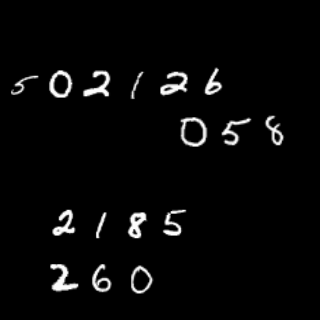 502126
058
2185
260